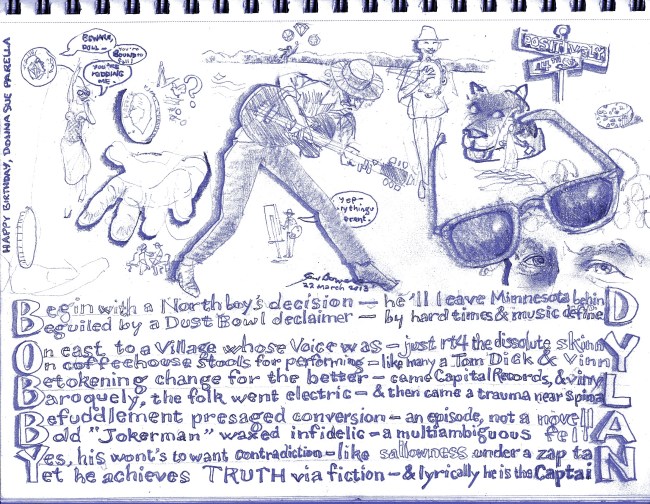 HAPPY BIRTHDAY, DONNA SUE PARELLA
BEWARE, DOLL—
YOU'RE BOUND TO
YOU'RE KIDDING ME.
POSITIVELY
4TH
YEP—
22 MARCH 2013
Begin with a Northboy's decision — he'll leave Minnesota behinD
Beguiled by a Dust Bowl declaimer — by hard times & music defineD
On east to a Village whose Voice was — just rt4 the dissolute skinnY
On coffeehouse stools for performing — like many a Tom Dick & VinnY
Betokening change for the better — came Capital Records, & vinyL
Baroquely, the folk went electric — & then came a trauma near spinaL
Befuddlement presaged conversion — an episode, not a novellA
Bold "Jokerman" waxed infidelic — a multiambiguous fellA
Yes, his wont's to want contradiction — like sallowness under a zap taN
Yet he achieves TRUTH via fiction — & lyrically he is the CaptaiN